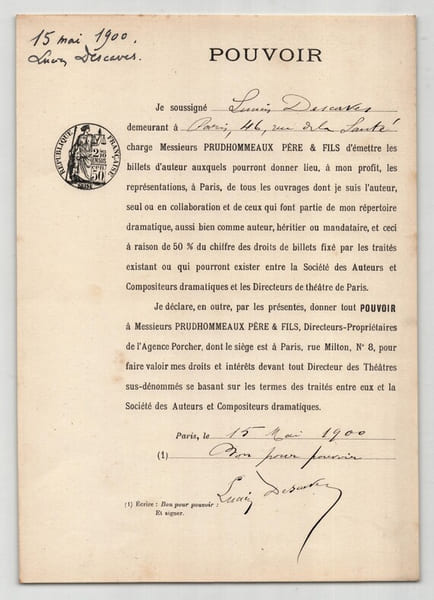 15 mai 1900.
Lucien Descaves.
POUVOIR
Je soussigné Lucien Descaves
demeurant à Paris, 46, rue de la Santé
charge Messieurs PRUDHOMMEAUX PÈRE & FILS d'émettre les
billets d'auteur auxquels pourront donner lieu, à mon profit, les
représentations, à Paris, de tous les ouvrages dont je suis l'auteur,
seul ou en collaboration et de ceux qui font partie de mon répertoire
dramatique, aussi bien comme auteur, héritier ou mandataire, et ceci
à raison de 50 % du chiffre des droits de billets fixé par les traités
existant ou qui pourront exister entre la Société des Auteurs et
Compositeurs dramatiques et les Directeurs de théâtre de Paris.
Je déclare, en outre, par les présentes, donner tout POUVOIR
à Messieurs PRUDHOMMEAUX PÈRE & FILS, Directeurs-Propriétaires
de l'Agence Porcher, dont le siège est à Paris, rue Milton, N° 8, pour
faire valoir mes droits et intérêts devant tout Directeur des Théâtres
sus-dénommés se basant sur les termes des traités entre eux et la
Société des Auteurs et Compositeurs dramatiques.
Paris, le 15 Mai 1900
(1) Bon pour pouvoir
Lucien Descaves
(1) Écrire : Bon pour pouvoir :
Et signer.
RÉPUBLIQUE FRANÇAISE
50